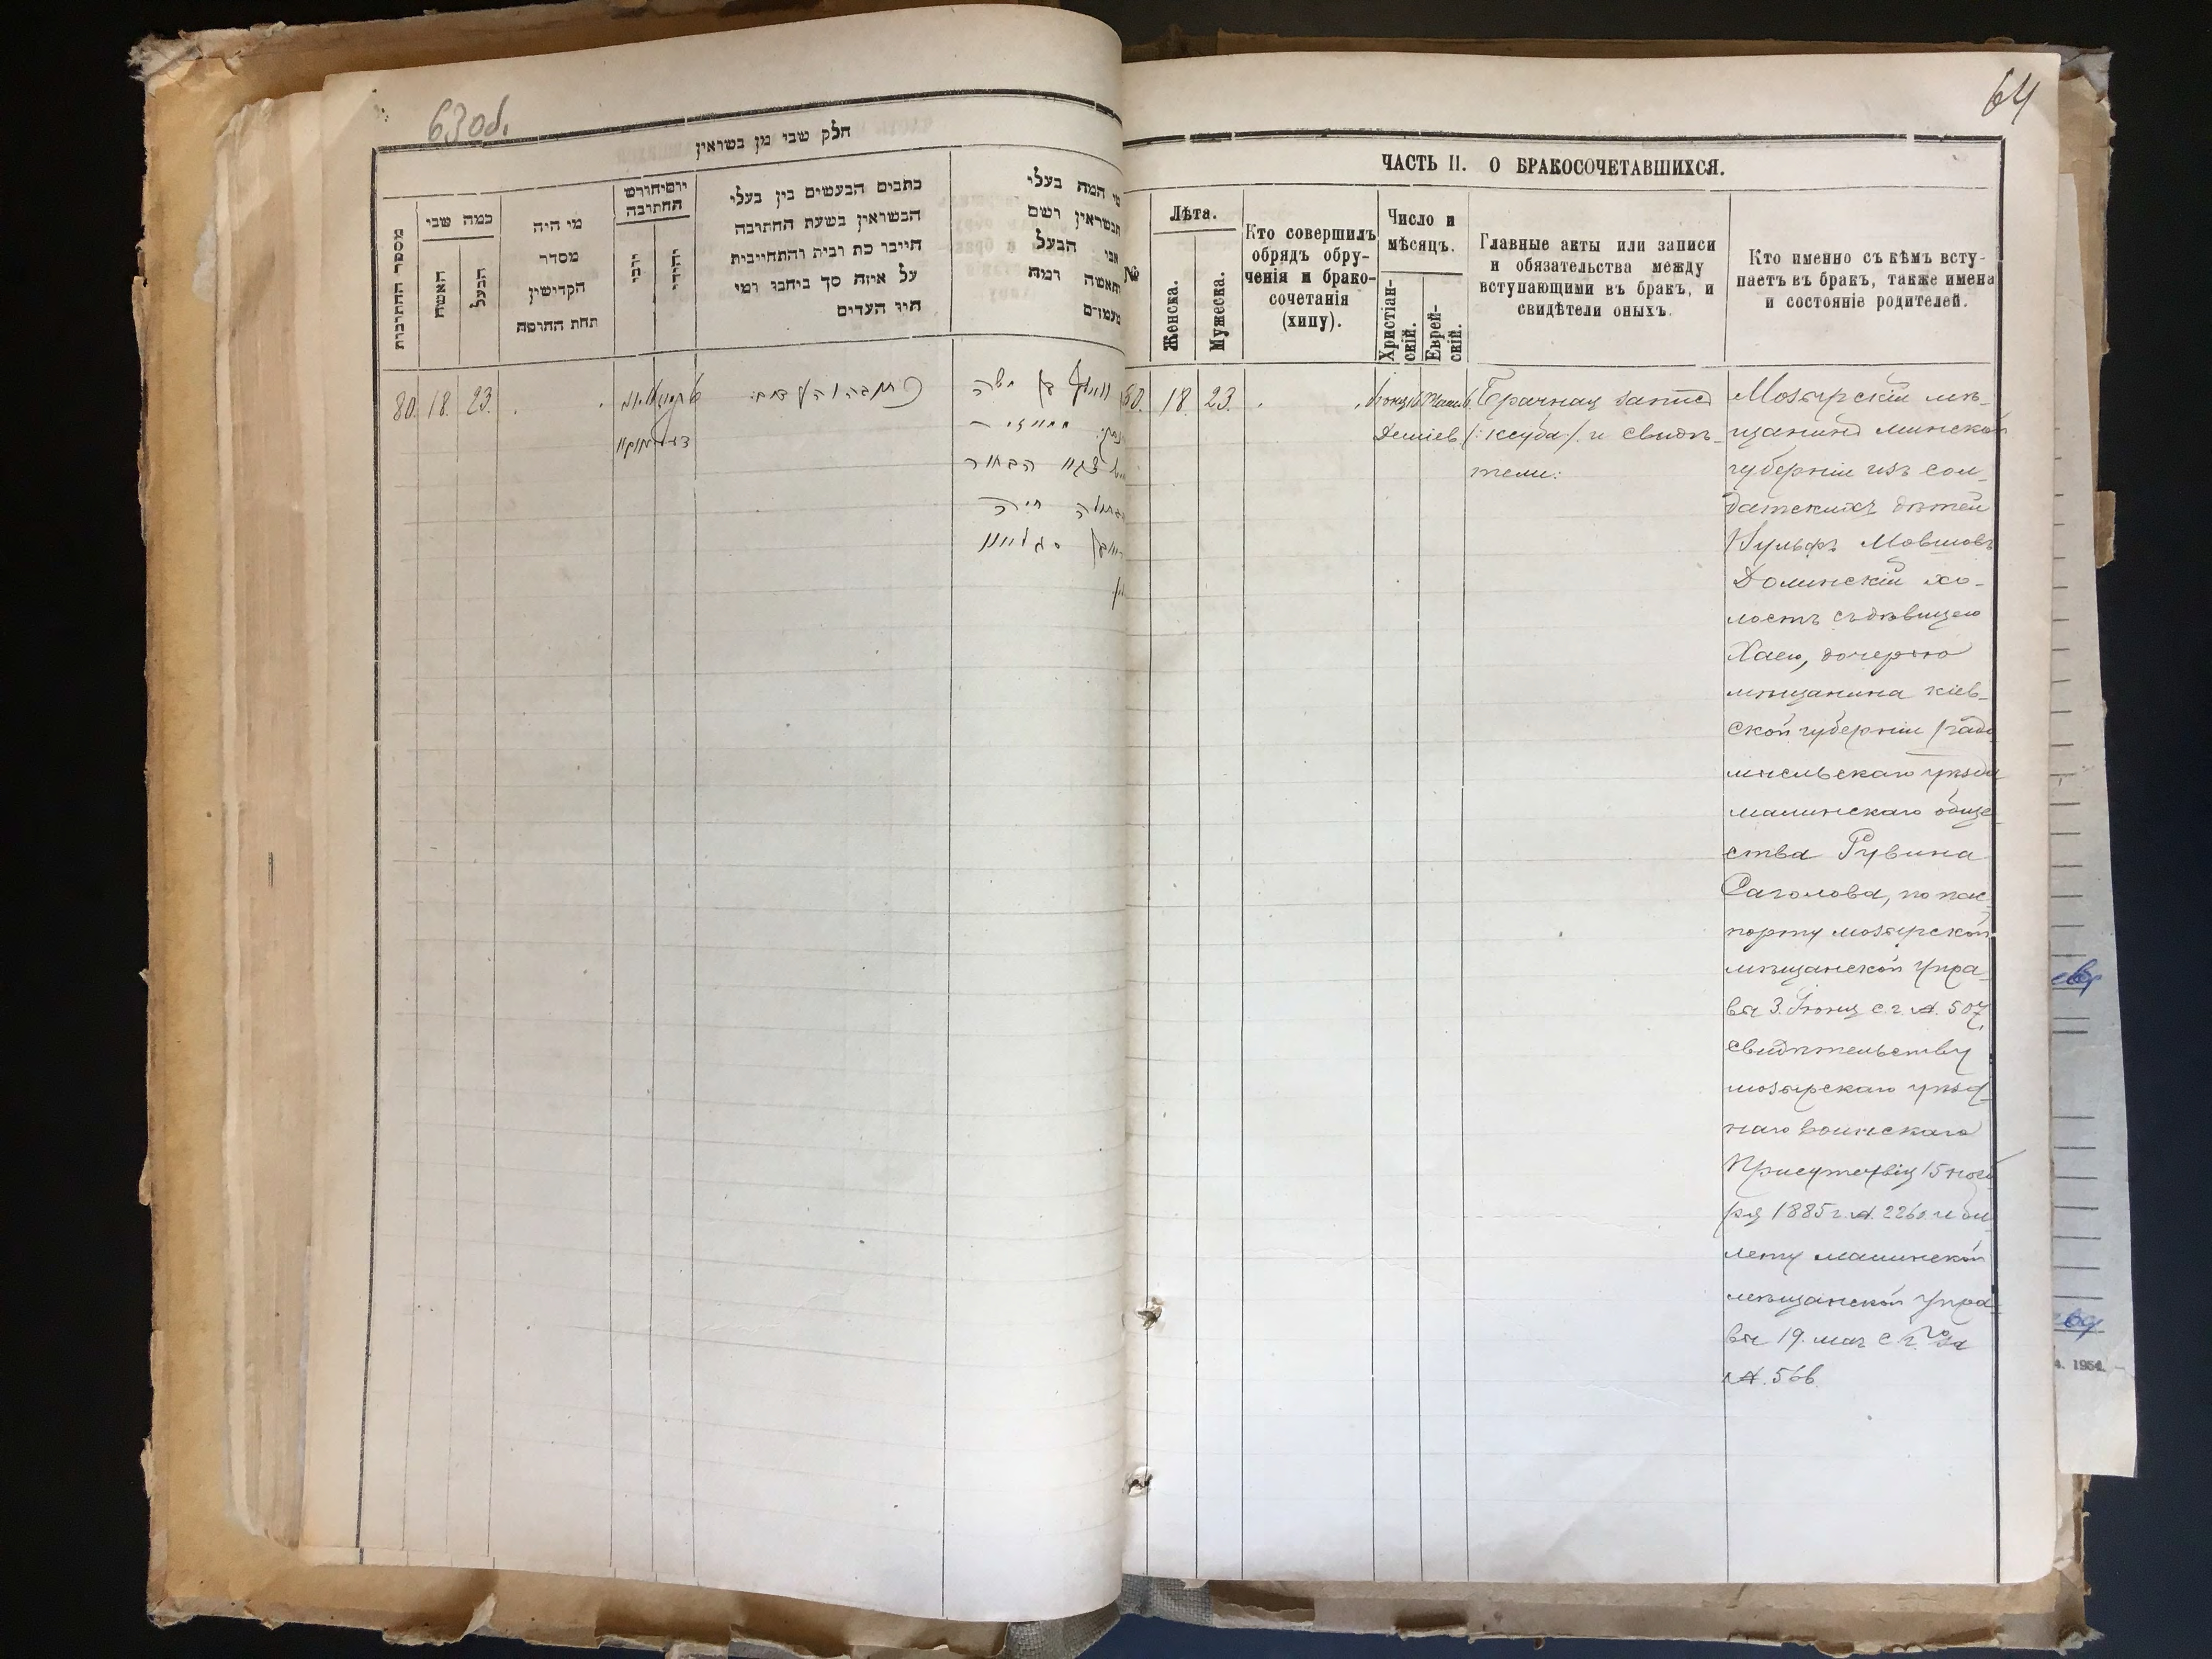 63об.
חלק שבי מן בשואין
מספר החתונות
כמה שני
האשה
הבעל
מי היה
מסדר
הקדישין
תחת החופה
יום וחודש
החתונה
כתבים הנעשים בין בעלי
הנשואין בשעת החתונה
חייבו כת ובית והתחייבות
על איזה סך ביחבו ומי
היו העדים
מי המה בעלי
הנשואין ושם
אבי הבעל
והאשה ומה
מעמדם
80. 18. 23.
כתובה והעדים:
64
ЧАСТЬ II. О БРАКОСОЧЕТАВШИХСЯ.
№
Лѣта.
Женска.
Мужеска.
Кто совершилъ
обрядъ обру-
ченія и брако-
сочетанія
(хипу).
Число и
мѣсяцъ.
Христіан-
скій.
Еврей-
скій.
Главные акты или записи
и обязательства между
вступающими въ бракъ, и
свидѣтели оныхъ.
Кто именно съ кѣмъ всту-
паетъ въ бракъ, также имена
и состояніе родителей.
80. 18. 23.
Демiев.
Брачная запись
/: ксуба/. и свидѣ-
тели:
Мозырскій мѣ-
щанинъ минской
губерніи изъ сол-
датскихъ дѣтей
Вульфъ Мовшовъ
Долинскій хо-
лостъ съ дѣвицею
Хаею, дочерью
мѣщанина кіев-
ской губерніи радо
мысльскаго уѣзда
малинскаго обще
ства Рувина
Саголова, по пас
порту мозырской
мѣщанской упра
вы 3. Іюня с. г. №. 507,
свидѣтельству
мозырскаго уѣзд
наго воинскаго
Присутствія 15 нояб
ря 1885 г. №. 2260. и би
лету малинской
мѣщанской упра-
вы 19. мая с. г. за
№. 566.
1954.